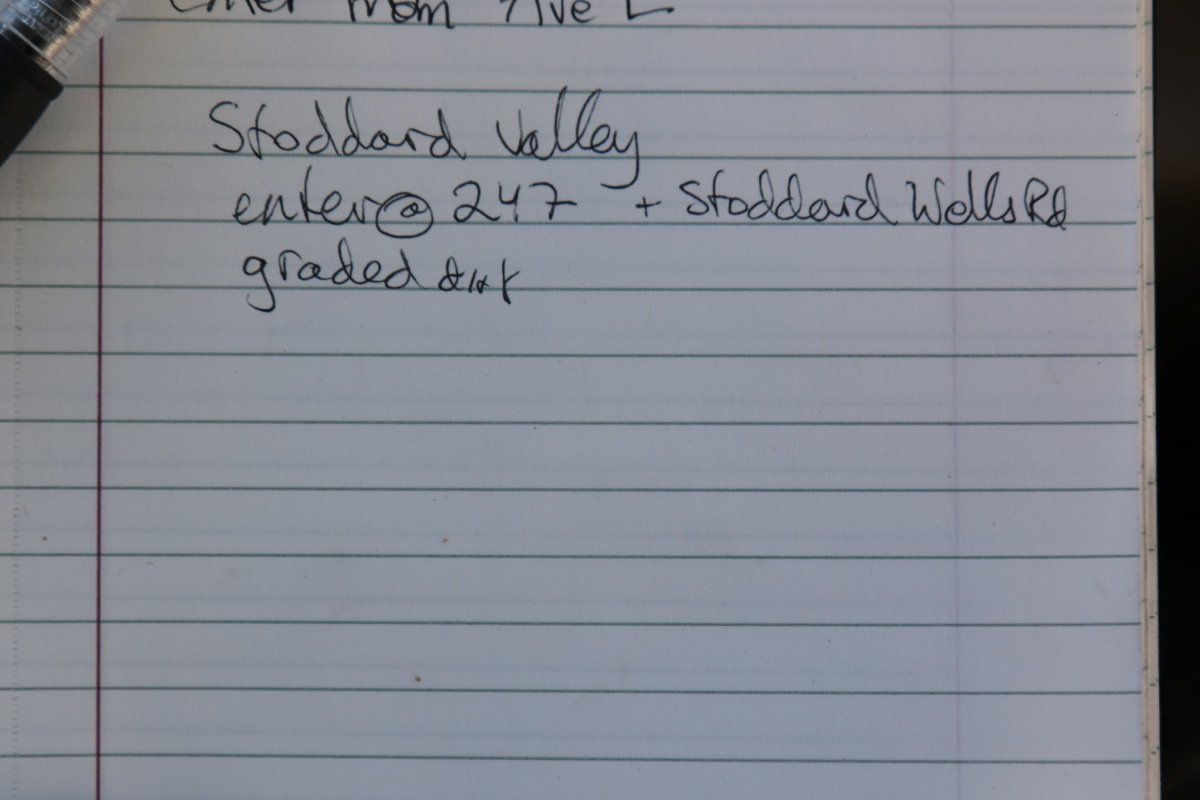 Enter from Ave L
Stoddard Valley
enter@ 247 + Stoddard Wells Rd
graded dirt